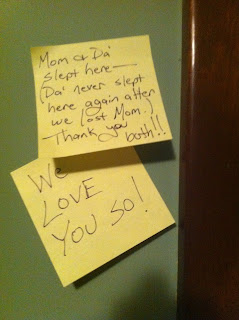 Mom & Da'
slept here—
(Da' never slept
here again after
we lost Mom.)
Thank you
both!!
We
LOVE
YOU SO!